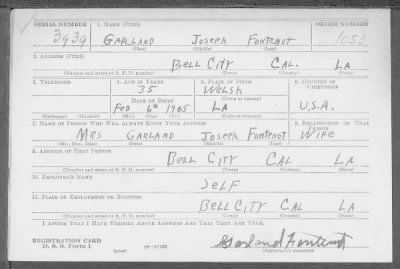 SERIAL NUMBER 1. NAME (Print) ORDER NUMBER
3939 GARLAND JOSEPH FONTENOT 1053
(First) (Middle) (Last)
2. ADDRESS (Print)
BELL CITY CAL. LA
(Number and street or R. F. D. number) (Town) (County) (State)
3. TELEPHONE 4. AGE IN YEARS 5. PLACE OF BIRTH 6. COUNTRY OF CITIZENSHIP
35 WELSH
DATE OF BIRTH (Town or county)
FEB 6th 1905 LA U.S.A.
(Exchange) (Number) (Mo.) (Day) (Yr.) (State or country)
7. NAME OF PERSON WHO WILL ALWAYS KNOW YOUR ADDRESS 8. RELATIONSHIP OF THAT PERSON
MRS GARLAND JOSEPH FONTENOT WIFE
(Mr., Mrs., Miss) (First) (Middle) (Last)
9. ADDRESS OF THAT PERSON
BELL CITY CAL LA
(Number and street or R. F. D. number) (Town) (County) (State)
10. EMPLOYER'S NAME
SELF
11. PLACE OF EMPLOYMENT OR BUSINESS
BELL CITY CAL LA
(Number and street or R. F. D. number) (Town) (County) (State)
I AFFIRM THAT I HAVE VERIFIED ABOVE ANSWERS AND THAT THEY ARE TRUE.
REGISTRATION CARD
D. S. S. FORM 1 (over) 16-17105 Garland Fontenot
(Registrant's signature)